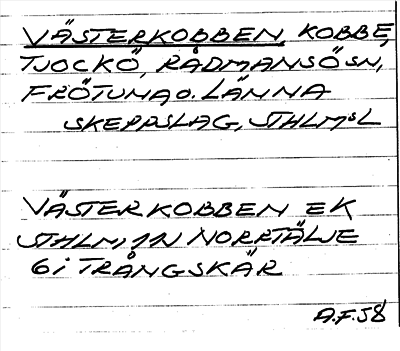 VÄSTERKOBBEN, KOBBE,
TJOCKÖ, RÅDMANSÖ SN,
FRÖTUNA O. LÄNNA
SKEPPSLAG, STHLMSL
VÄSTERKOBBEN EK
STHLM, 1N NORRTÄLJE
6 i TRÅNGSKÄR
A.F. 58